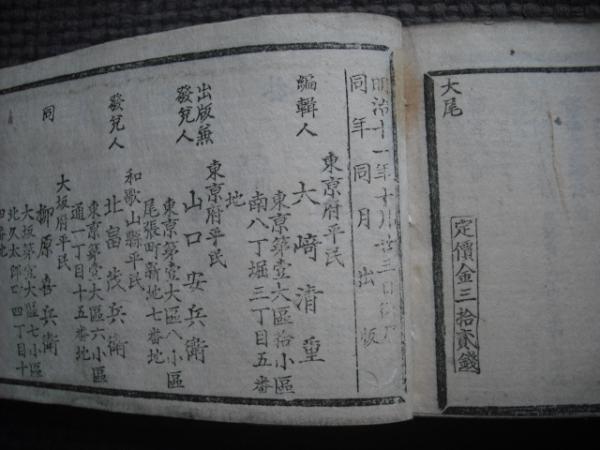 大尾
定價金三拾貳錢
明治十一年十月廿三日
同年同月出版
東京府平民
編輯人 大﨑清重
東京第壹大區拾小區
南八丁堀三丁目五番
地
東京府平民
出版兼
發兌人 山口安兵衛
東京第壹大區八小區
尾張町新地七番地
和歌山縣平民
發兌人 北畠茂兵衛
東京第壹大區六小區
通一丁目十五番地
大坂府平民
同 柳原喜兵衛
大坂第壹大區七小區
北久太郎町四丁目十
四番地